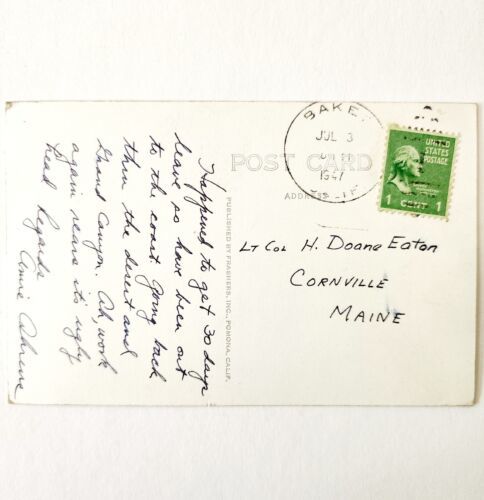 Happened to get 30 days
leave so have been out
to the coast. Going back
thru the desert and
Grand Canyon. Ah, work
again rears it's ugly
head. Regards
PUBLISHED BY FRASHERS, INC., POMONA, CALIF.
POST CARD
ADDRESS
BAKER
JUL 3
1947
CALIF.
UNITED
STATES
POSTAGE
1 CENT 1
LT COL H. DOANE EATON
CORNVILLE
MAINE